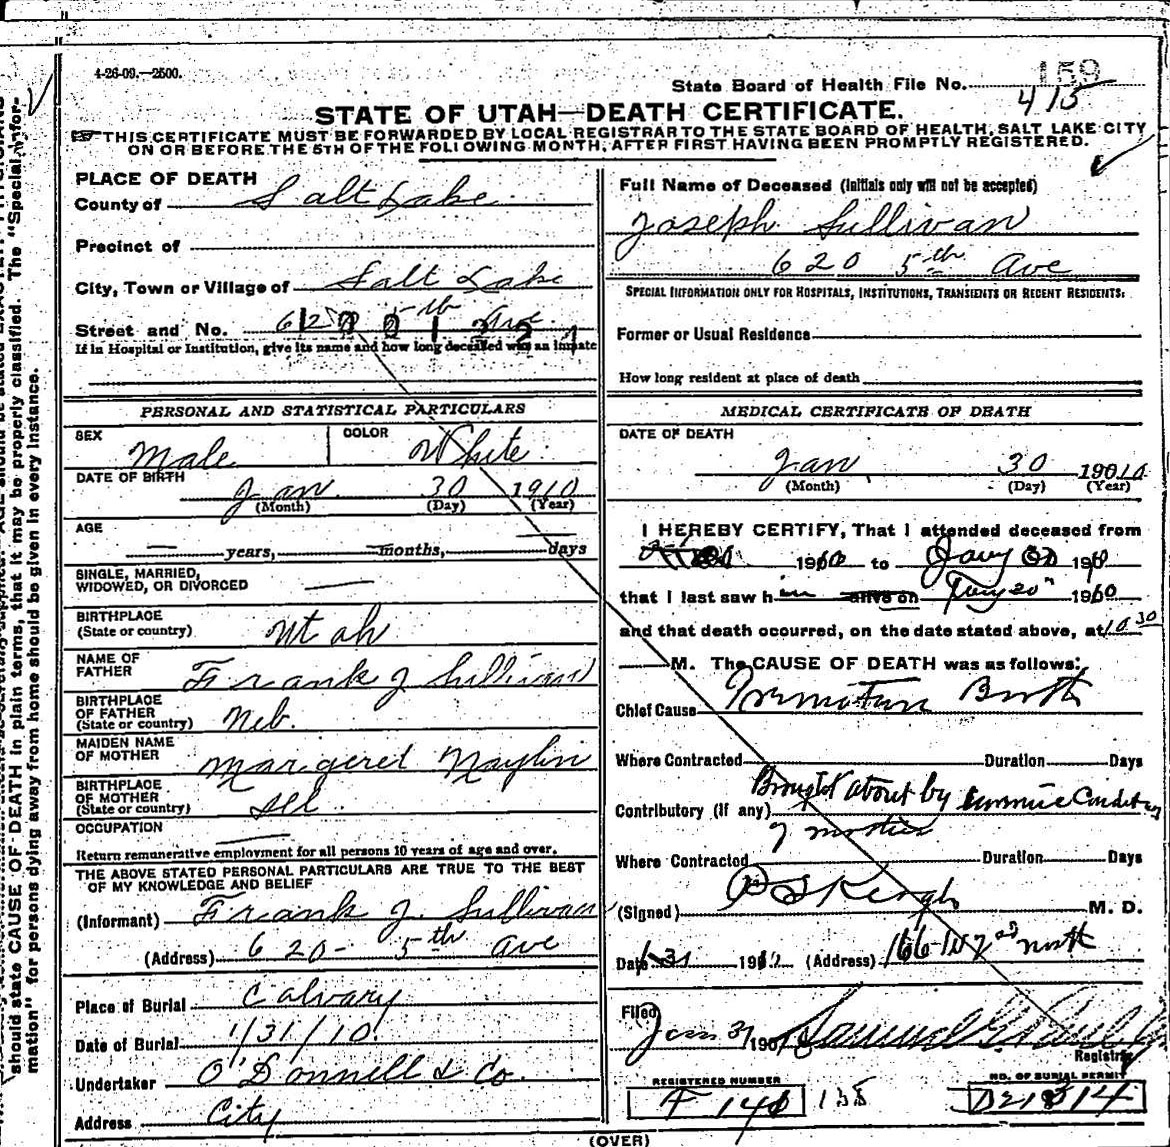 4-26-09.—2500.
State Board of Health File No. 159
415
STATE OF UTAH—DEATH CERTIFICATE.
THIS CERTIFICATE MUST BE FORWARDED BY LOCAL REGISTRAR TO THE STATE BOARD OF HEALTH, SALT LAKE CITY
ON OR BEFORE THE 5TH OF THE FOLLOWING MONTH, AFTER FIRST HAVING BEEN PROMPTLY REGISTERED.
PLACE OF DEATH
County of Salt Lake
Precinct of
City, Town or Village of Salt Lake
Street and No. 620 5th Ave
If in Hospital or Institution, give its name and how long deceased was an inmate
Full Name of Deceased (Initials only will not be accepted)
Joseph Sullivan
620 5th Ave
SPECIAL INFORMATION ONLY FOR HOSPITALS, INSTITUTIONS, TRANSIENTS OR RECENT RESIDENTS:
Former or Usual Residence
How long resident at place of death
PERSONAL AND STATISTICAL PARTICULARS
SEX Male COLOR White
DATE OF BIRTH
Jan 30 1910
(Month) (Day) (Year)
AGE
— years, — months, — days
SINGLE, MARRIED,
WIDOWED, OR DIVORCED —
BIRTHPLACE
(State or country) Utah
NAME OF
FATHER Frank J Sullivan
BIRTHPLACE
OF FATHER
(State or country) Neb.
MAIDEN NAME
OF MOTHER Margeret Naylin
BIRTHPLACE
OF MOTHER
(State or country) Ill
OCCUPATION —
Return remunerative employment for all persons 10 years of age and over.
THE ABOVE STATED PERSONAL PARTICULARS ARE TRUE TO THE BEST
OF MY KNOWLEDGE AND BELIEF
(Informant) Frank J. Sullivan
(Address) 620 - 5th Ave
Place of Burial Calvary
Date of Burial 1/31/10.
Undertaker O'Donnell & Co.
Address City
MEDICAL CERTIFICATE OF DEATH
DATE OF DEATH
Jan 30 1910
(Month) (Day) (Year)
I HEREBY CERTIFY, That I attended deceased from
1910 to Jany 30 1910
that I last saw him alive on Jany 30" 1910
and that death occurred, on the date stated above, at 10 30
M. The CAUSE OF DEATH was as follows:
Chief Cause Premature Birth
Where Contracted Duration Days
Contributory (if any) Brought about by
of mother
Where Contracted Duration Days
(Signed) Keogh M. D.
Date 1-31 (Address) 2nd north
Filed Jan 31 190 Samuel G. Paul
Registrar
REGISTERED NUMBER
F 141 155
NO. OF BURIAL PERMIT
(OVER)
should state CAUSE OF DEATH in plain terms, that it may be properly classified. The "Special Infor-
mation" for persons dying away from home should be given in every instance.